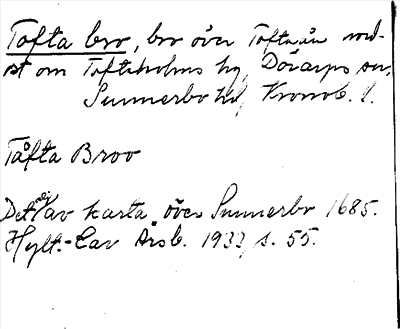 Tofta bro, bro över Toftaån nord-
ost om Toftaholms hg, Dörarps sn,
Sunnerbo hd, Kronob. l.
Tåfta Broo
Detalj av karta över Sunnerbo 1685.
Hylt.-Cav Årsb. 1932, s. 55.